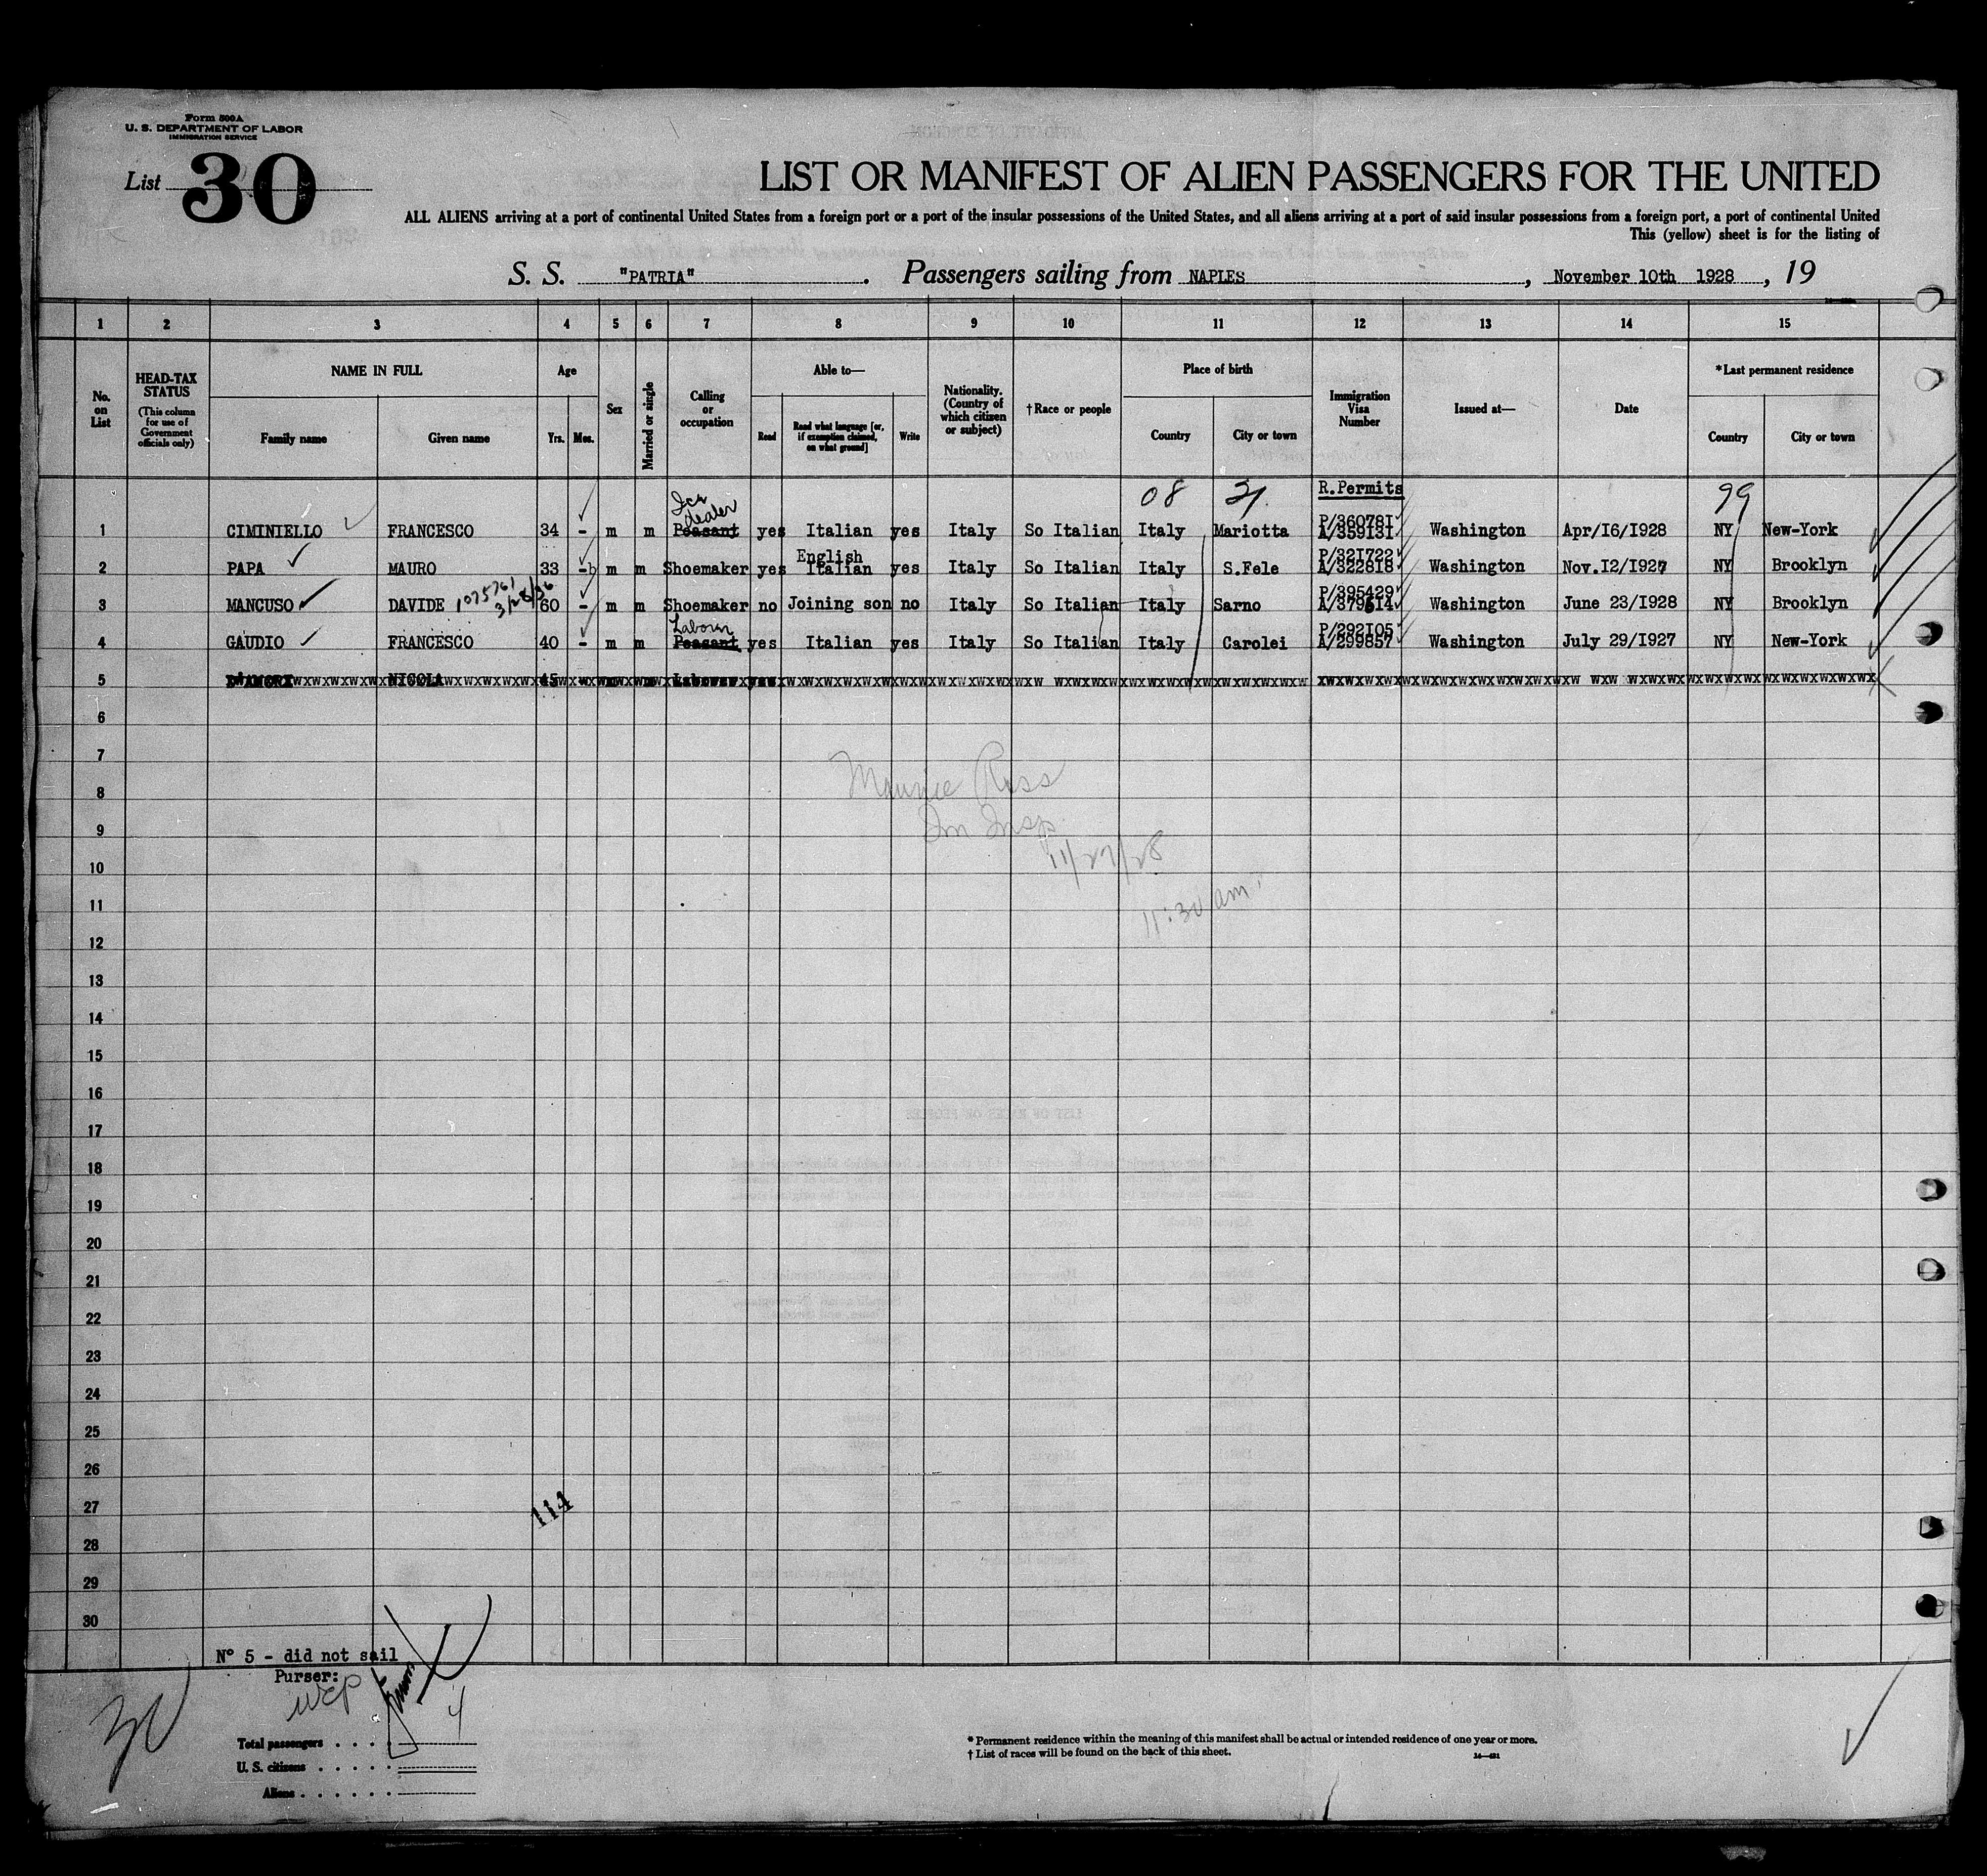 Form 500A
U. S. DEPARTMENT OF LABOR
IMMIGRATION SERVICE
List 30
LIST OR MANIFEST OF ALIEN PASSENGERS FOR THE UNITED
ALL ALIENS arriving at a port of continental United States from a foreign port or a port of the insular possessions of the United States, and all aliens arriving at a port of said insular possessions from a foreign port, a port of continental United
This (yellow) sheet is for the listing of
S. S. "PATRIA". Passengers sailing from NAPLES, November 10th 1928, 19
1 2 3 4 5 6 7 8 9 10 11 12 13 14 15
No. on List
HEAD-TAX STATUS
(This column for use of Government officials only)
NAME IN FULL
Family name
Given name
Age
Yrs.
Mos.
Sex
Married or single
Calling or occupation
Able to—
Read
Read what language [or, if exemption claimed, on what ground]
Write
Nationality. (Country of which citizen or subject)
†Race or people
Place of birth
Country
City or town
Immigration Visa Number
Issued at—
Date
*Last permanent residence
Country
City or town
08 R.Permits 99
Ice dealer
P/36078I
1 CIMINIELLO FRANCESCO 34 - m m Peasant yes Italian yes Italy So Italian Italy Mariotta A/359I3I Washington Apr/I6/I928 NY New-York
English P/32I722
2 PAPA MAURO 33 - m m Shoemaker yes Italian yes Italy So Italian Italy S.Fele A/3228I8 Washington Nov.I2/I927 NY Brooklyn
1075761 3/28/36 P/395429
3 MANCUSO DAVIDE 60 - m m Shoemaker no Joining son no Italy So Italian Italy Sarno A/379614 Washington June 23/I928 NY Brooklyn
Laborer P/292I05
4 GAUDIO FRANCESCO 40 - m m Peasant yes Italian yes Italy So Italian Italy Carolei A/299857 Washington July 29/I927 NY New-York
5 D'AMORE NICOLA 45 - m m Laborer yes
6
7
8
9
10
11
12
13
14
15
16
17
18
19
20
21
22
23
24
25
26
27
28
29
30
Maurice Ross
Im Insp
11/27/28
11:30 am
114
N° 5 - did not sail
Purser:
30
4
Total passengers
U. S. citizens
Aliens
* Permanent residence within the meaning of this manifest shall be actual or intended residence of one year or more.
† List of races will be found on the back of this sheet.